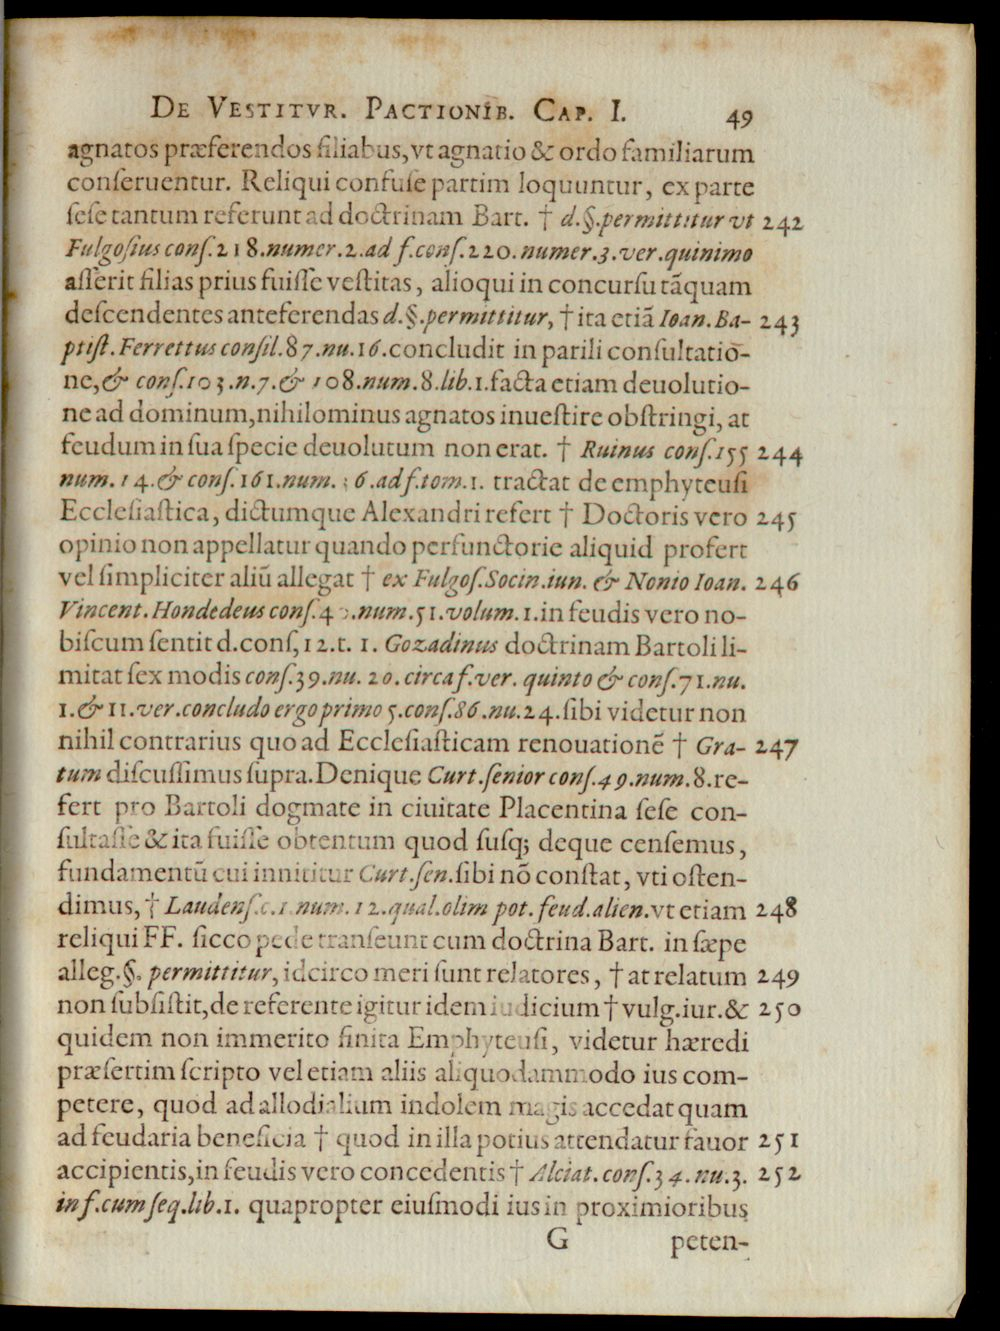 DE VESTITVR. PACTIONIB. CAP. I. 49
agnatos præferendos filiabus,vt agnatio & ordo familiarum
conſeruentur. Reliqui confuſe partim loquuntur, ex parte
ſeſe tantum referunt ad doctrinam Bart. † d.§.permittitur vt 242
Fulgoſius conſ.218.numer.2.ad f.conſ.220.numer.3.ver.quinimo
aſſerit filias prius fuiſſe veſtitas, alioqui in concurſu tāquam
deſcendentes anteferendas d.§.permittitur, † ita etiā Ioan.Ba- 243
ptiſt.Ferrettus conſil.87.nu.16.concludit in parili conſultatio-
ne,& conſ.103.n.7.& 108.num.8.lib.1.facta etiam deuolutio-
ne ad dominum,nihilominus agnatos inueſtire obſtringi, at
feudum in ſua ſpecie deuolutum non erat. † Ruinus conſ.155 244
num.14.& conſ.161.num. 6.ad f.tom.1. tractat de emphyteuſi
Eccleſiaſtica, dictumque Alexandri refert † Doctoris vero 245
opinio non appellatur quando perfunctorie aliquid profert
vel ſimpliciter aliū allegat † ex Fulgoſ.Socin.iun. & Nonio Ioan. 246
Vincent.Hondedeus conſ.40.num.51.volum.1.in feudis vero no-
biſcum ſentit d.conſ,12.t. 1. Gozadinus doctrinam Bartoli li-
mitat ſex modis conſ.39.nu. 20. circa f.ver. quinto & conſ.71.nu.
1.& 11.ver.concludo ergo primo 5.conſ.86.nu.24.ſibi videtur non
nihil contrarius quo ad Eccleſiaſticam renouationē † Gra- 247
tum diſcuſſimus ſupra.Denique Curt.ſenior conſ.49.num.8.re-
fert pro Bartoli dogmate in ciuitate Placentina ſeſe con-
ſultaſſe & ita fuiſſe obtentum quod ſuſq; deque cenſemus,
fundamentū cui innititur Curt.ſen.ſibi nō conſtat, vti oſten-
dimus, † Laudenſ.c.1.num.12.qual.olim pot.feud.alien.vt etiam 248
reliqui FF. ſicco pede tranſeunt cum doctrina Bart. in ſæpe
alleg.§. permittitur, idcirco meri ſunt relatores, † at relatum 249
non ſubſiſtit,de referente igitur idem iudicium † vulg.iur.& 250
quidem non immerito finita Emphyteuſi, videtur hæredi
præſertim ſcripto vel etiam aliis aliquodammodo ius com-
petere, quod ad allodialium indolem magis accedat quam
ad feudaria beneficia † quod in illa potius attendatur fauor 251
accipientis,in feudis vero concedentis † Alciat.conſ.34.nu.3. 252
in f.cum ſeq.lib.1. quapropter eiuſmodi ius in proximioribus
G peten-